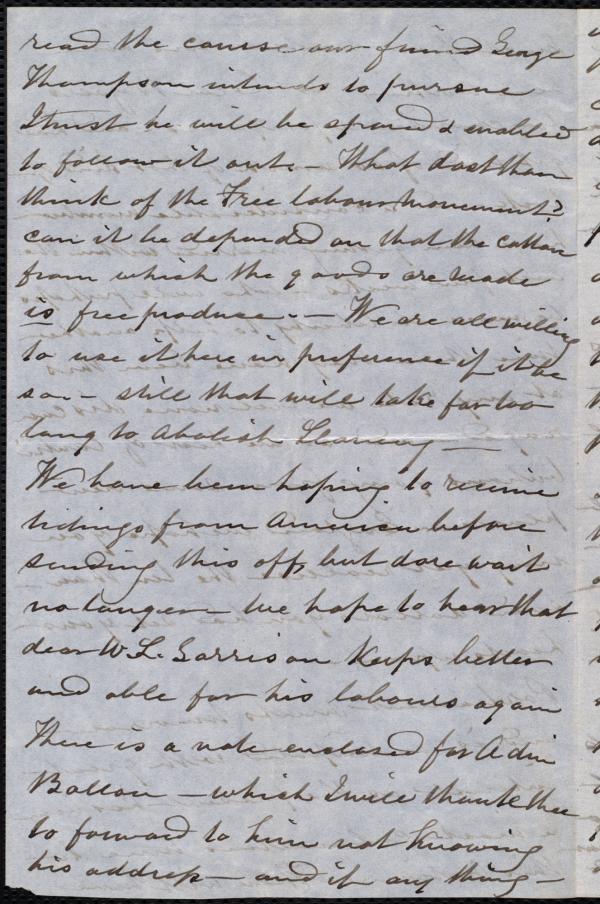 read the course our friend George
Thompson intends to pursue
I trust he will be spared & enabled
to follow it out. – What dost thou
think of the Free labour movement?
can it be depended on that the cotton
from which the goods are made
is free produce. – We are all willing
to use it here in preference if it be
so. – still that will take far too
long to abolish Slavery –
We have been hoping to receive
tidings from America before
sending this off, but dare wait
no longer – we hope to hear that
dear W. L. Garrison keeps better
and able for his labours again
There is a note enclosed for Adin
Ballou – which I will thank thee
to forward to him not knowing
his address – and if any thing –